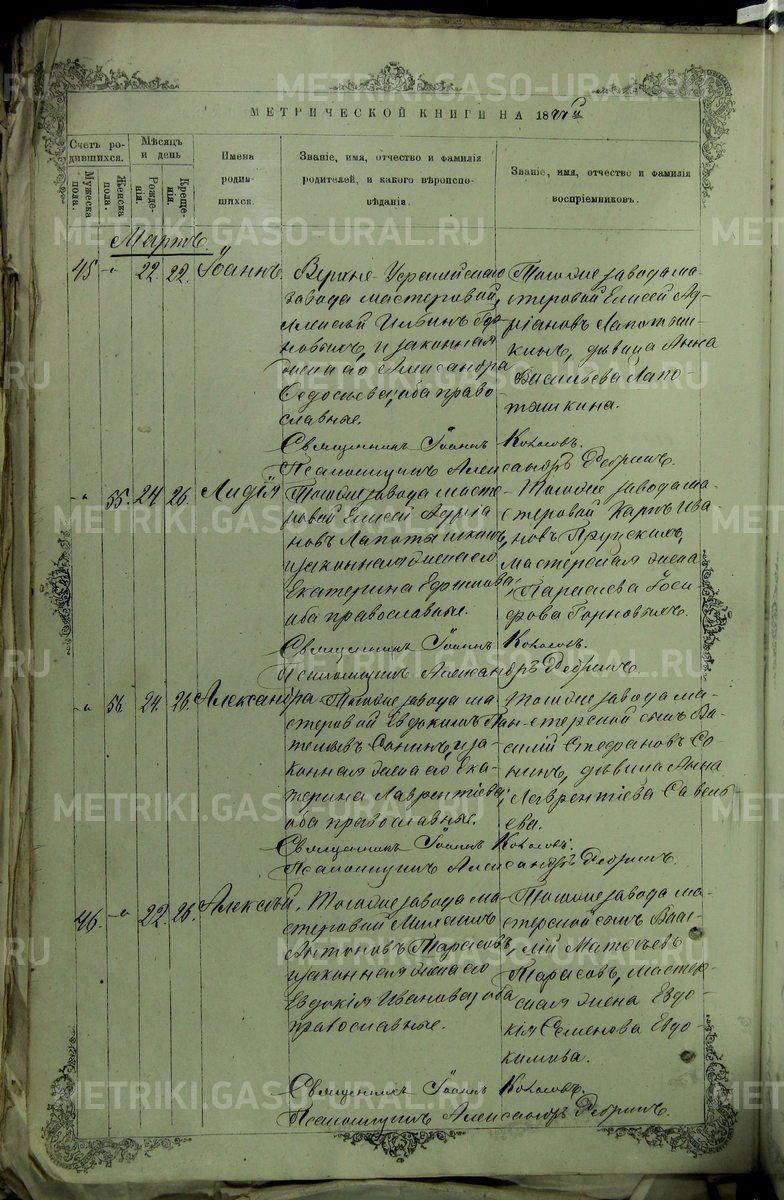 METRIKI.GASO-URAL.RU
МЕТРИЧЕСКОЙ КНИГИ НА 18
Счетъ родившихся.
Мужеска пола.
Женска пола.
Мѣсяцъ и день
Рожденія.
Крещенія.
Имена родившихся.
Званіе, имя, отчество и фамилія родителей, и какого вѣроисповѣданія.
Званіе, имя, отчество и фамилія воспріемниковъ.
Мартъ.
45 " 22. 22. Іоаннъ.
завода мастеровой
Алексѣй Ильинъ
новыхъ, и законная
жена его Александра
Ѳедосѣева, оба право-
славные.
Тогоже завода ма-
стеровой Елисей Ад-
ріановъ Лапотыш-
кинъ, дѣвица Анна
Васильева Лапо-
тышкина.
Священникъ Іоаннъ
Псаломщикъ Александръ
" 55. 24 26. Лидія
Тогоже завода масте-
ровой Елисей Адріа-
новъ Лапотышкинъ,
и законная жена его
Екатерина Ефимова,
оба православные.
Тогоже завода ма-
стеровой Карпъ Ива-
новъ
мастерская жена
Іоси-
фова Горновыхъ.
Священникъ Іоаннъ
Псаломщикъ Александръ
" 56. 24. 26. Александра
Тогоже завода ма-
стеровой Евдокимъ Пан-
телѣевъ Сонинъ, и за-
конная жена его Ека-
терина Лаврентіева,
оба православные.
Тогоже завода ма-
стерской сынъ Ва-
силій Стефановъ Со-
нинъ, дѣвица Анна
Лаврентіева Савель-
ева.
Священникъ Іоаннъ
Псаломщикъ Александръ
46. " 22. 26. Алексѣй.
Тогоже завода ма-
стеровой Михаилъ
Антоновъ Тарасовъ,
и законная жена его
Евдокія Иванова, оба
православные.
Тогоже завода ма-
стерской сынъ Васи-
лій Матвѣевъ
Тарасовъ, мастер-
ская жена Евдо-
кія Семенова Евдо-
кимова.
Священникъ Іоаннъ
Псаломщикъ Александръ